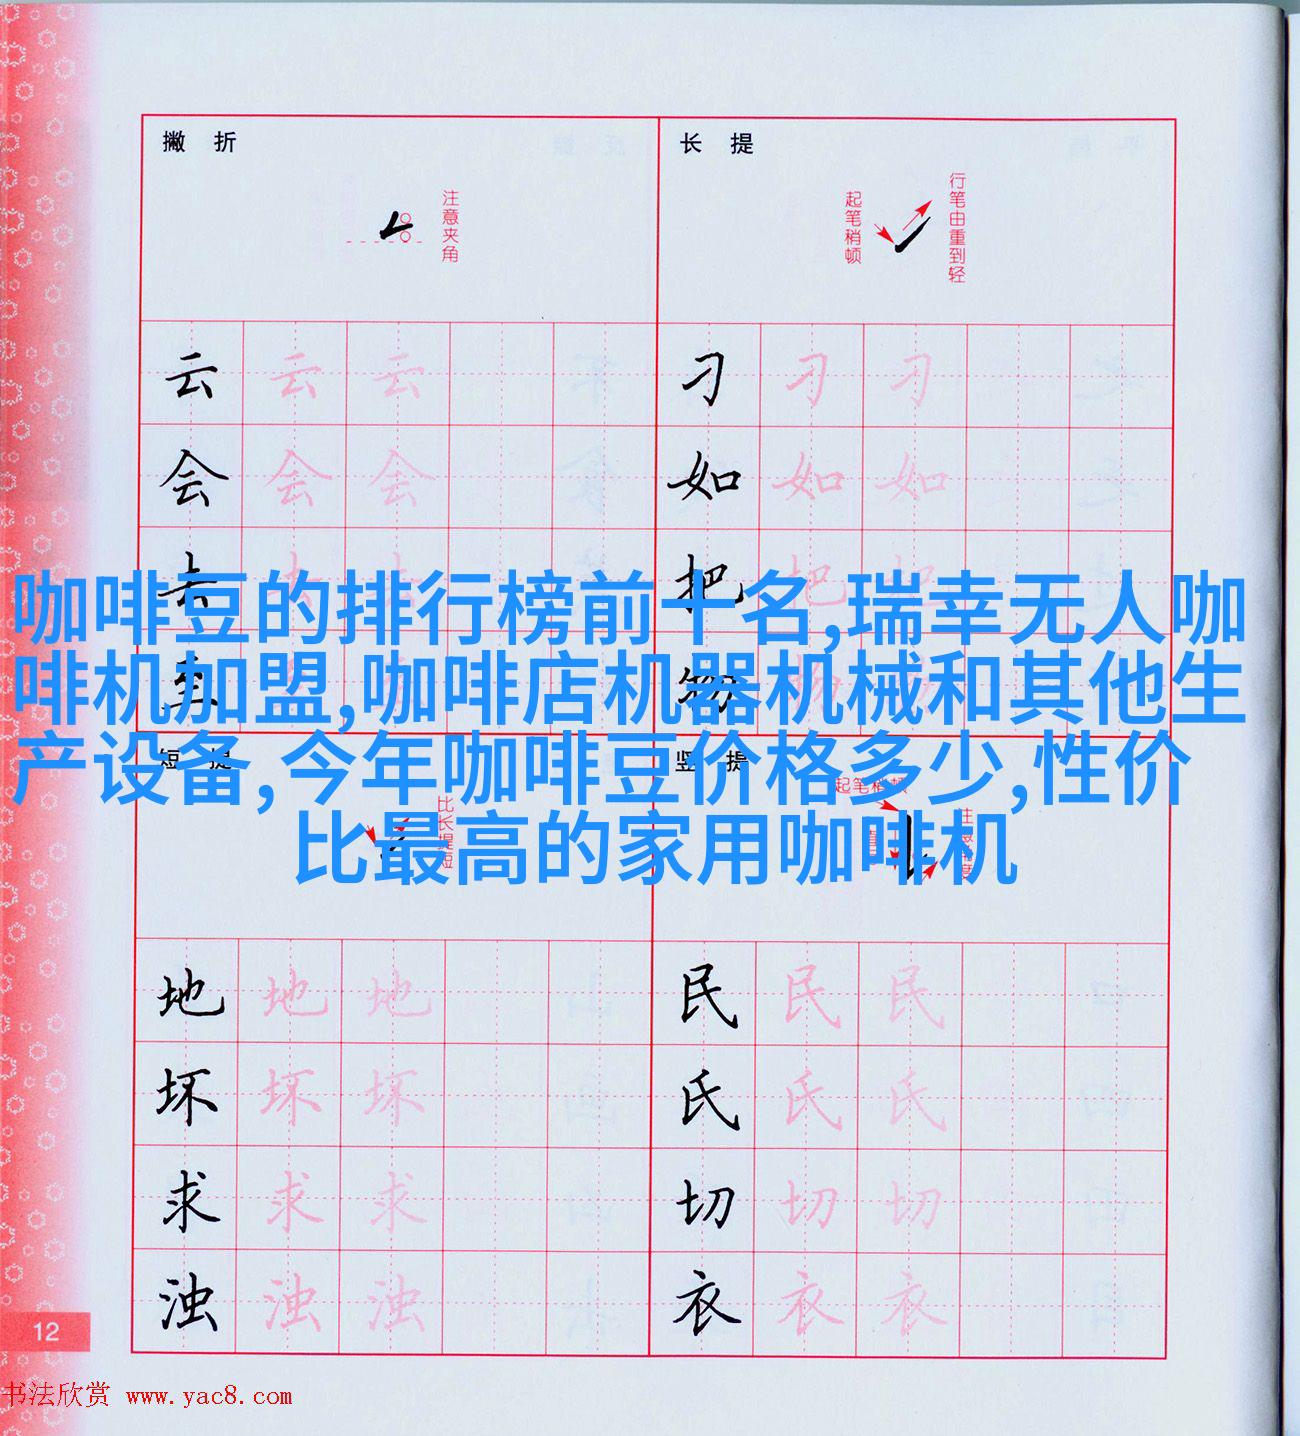 撇 折
注意夹角
云 云 云
会 会 会
去 去 去
至
长 提
起笔稍顿
行笔由重到轻
刁 刁 刁
如 如 如
把 把 把
物 物
咖啡豆的排行榜前十名,瑞幸无人咖
啡机加盟,咖啡店机器机械和其他生
产设备,今年咖啡豆价格多少,性价
比最高的家用咖啡机
短 提
比长提短
地 地 地
坏 坏 坏
求 求 求
浊 浊 浊
竖 提
起笔稍顿
民 民 民
氏 氏 氏
切 切 切
衣 衣 衣
12
书法欣赏 www.yac8.com